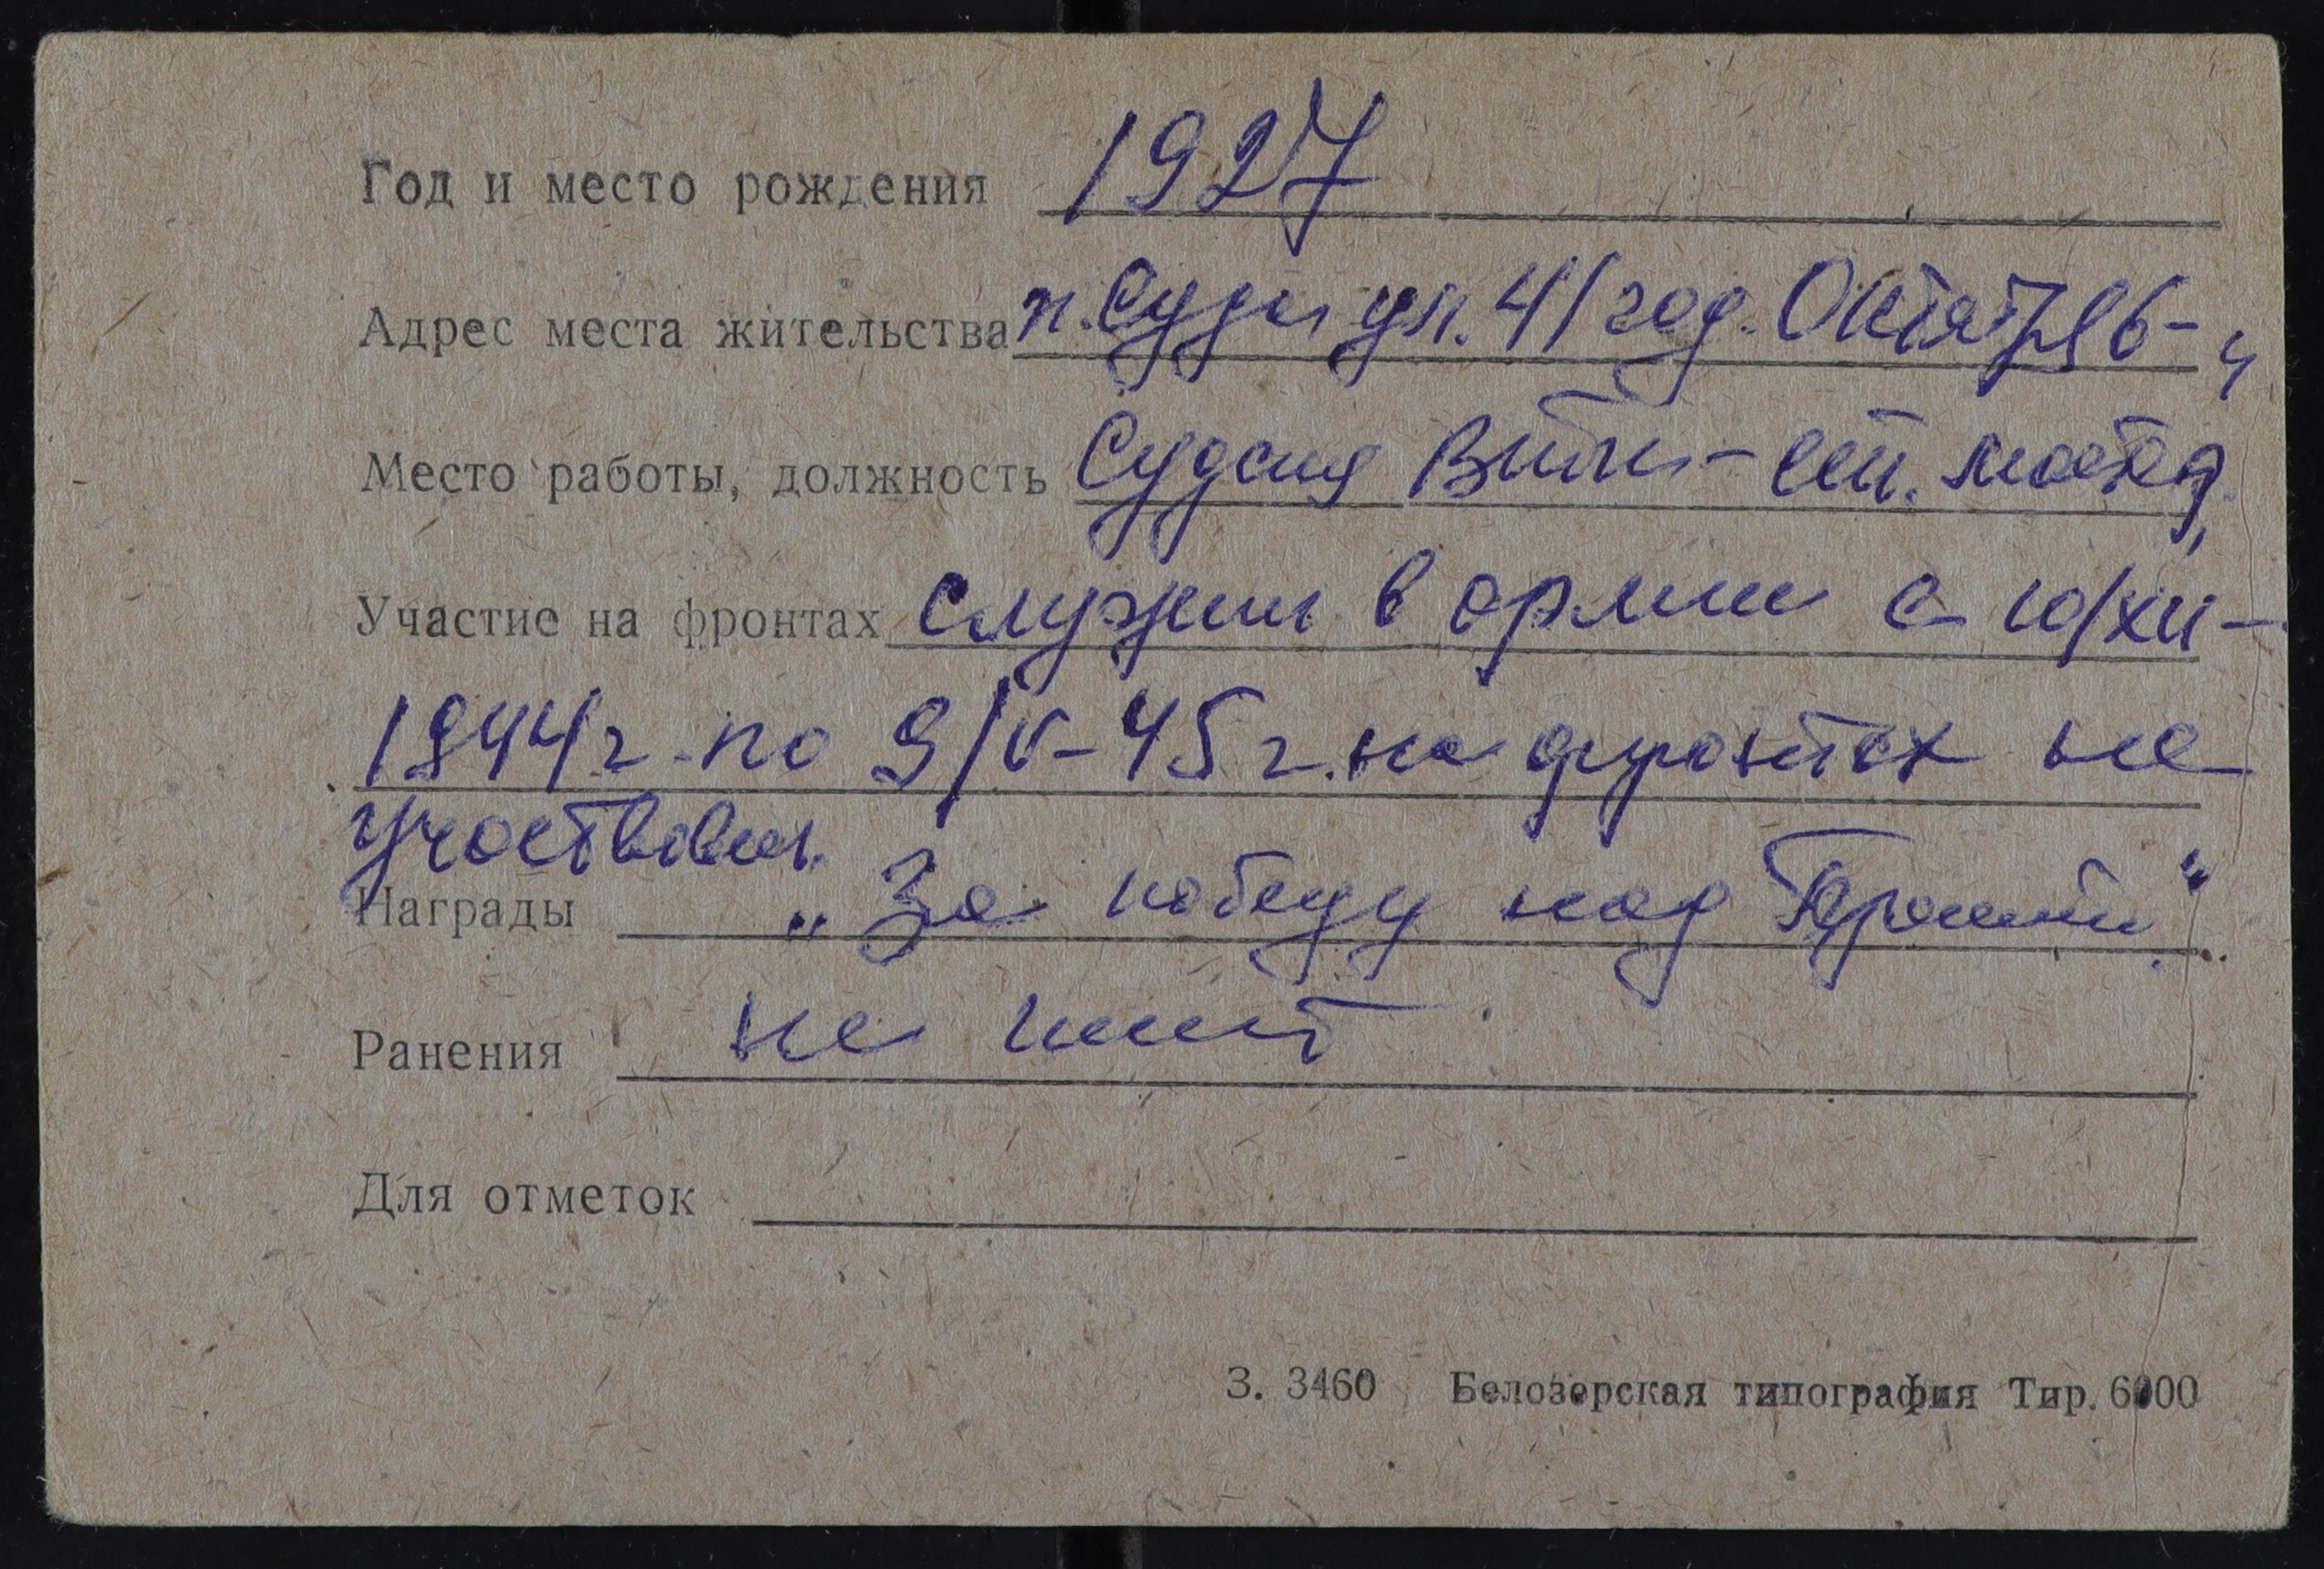 Год и место рождения 1927
Адрес места жительства п. Суда ул. 41 год. Октября 6-4
Место работы, должность Судская
Участие на фронтах Служил в армии с 10/XII-
1944 г. по 9/V-45 г. на фронтах не
участвовал.
Награды „За победу над Германией".
Ранения не имеет
Для отметок
З. 3460 Белозерская типография Тир. 6000